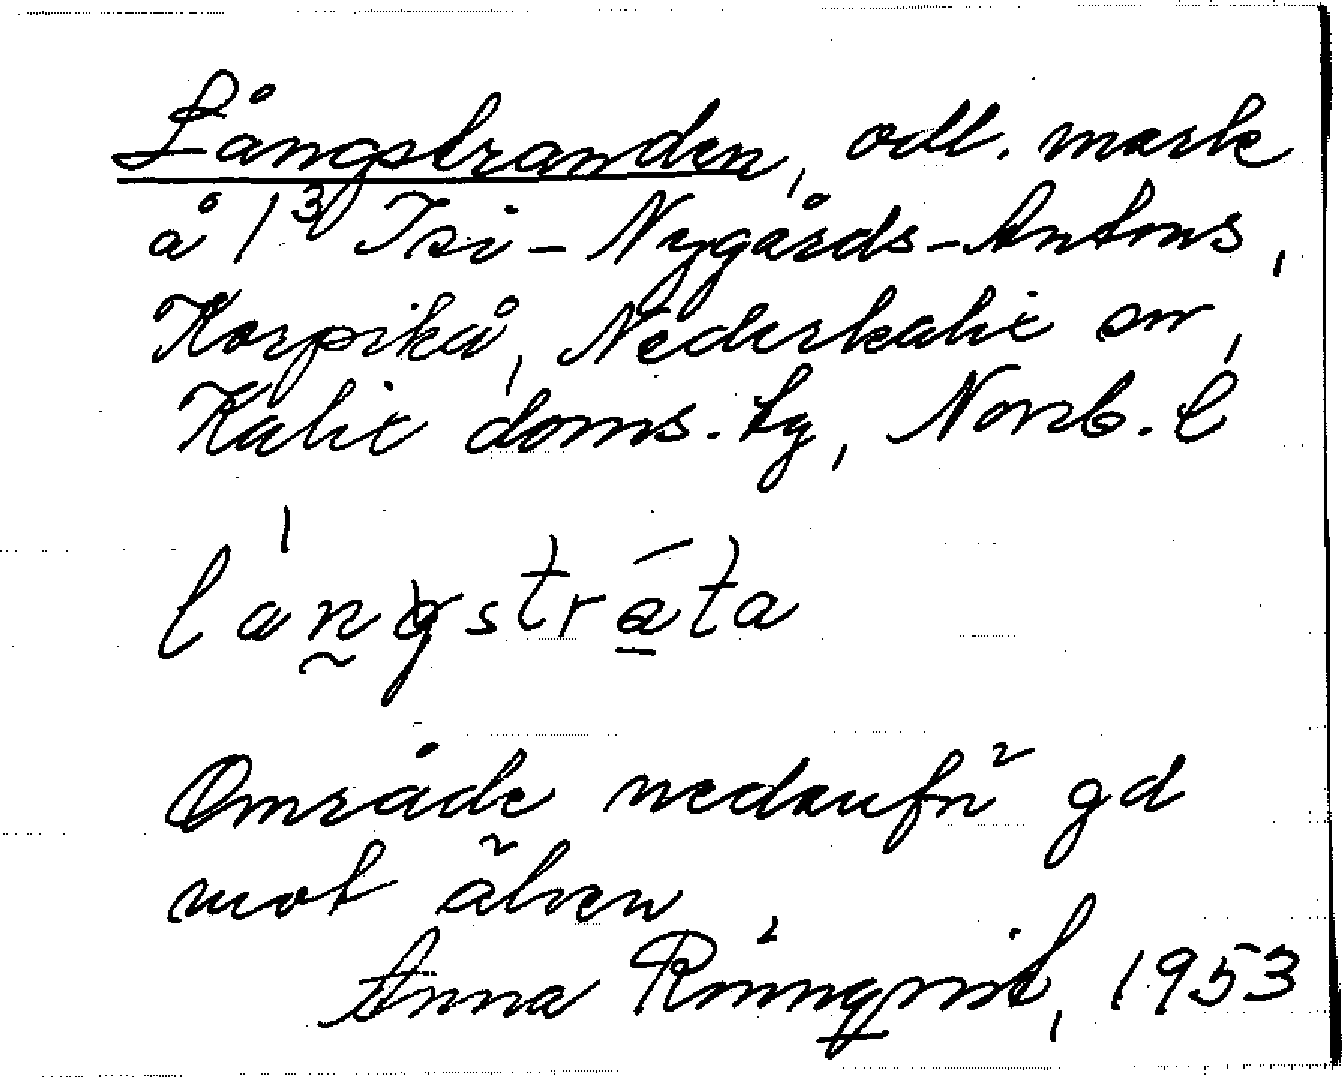 Långstranden, odl. mark
å 1³ Isi-Nygårds-Antons,
Korpikå, Nederkalix sn,
Kalix doms.tg, Norrb. l
langstrata
Område nedanför gd
mot älven
Anna Rönnqvist, 1953